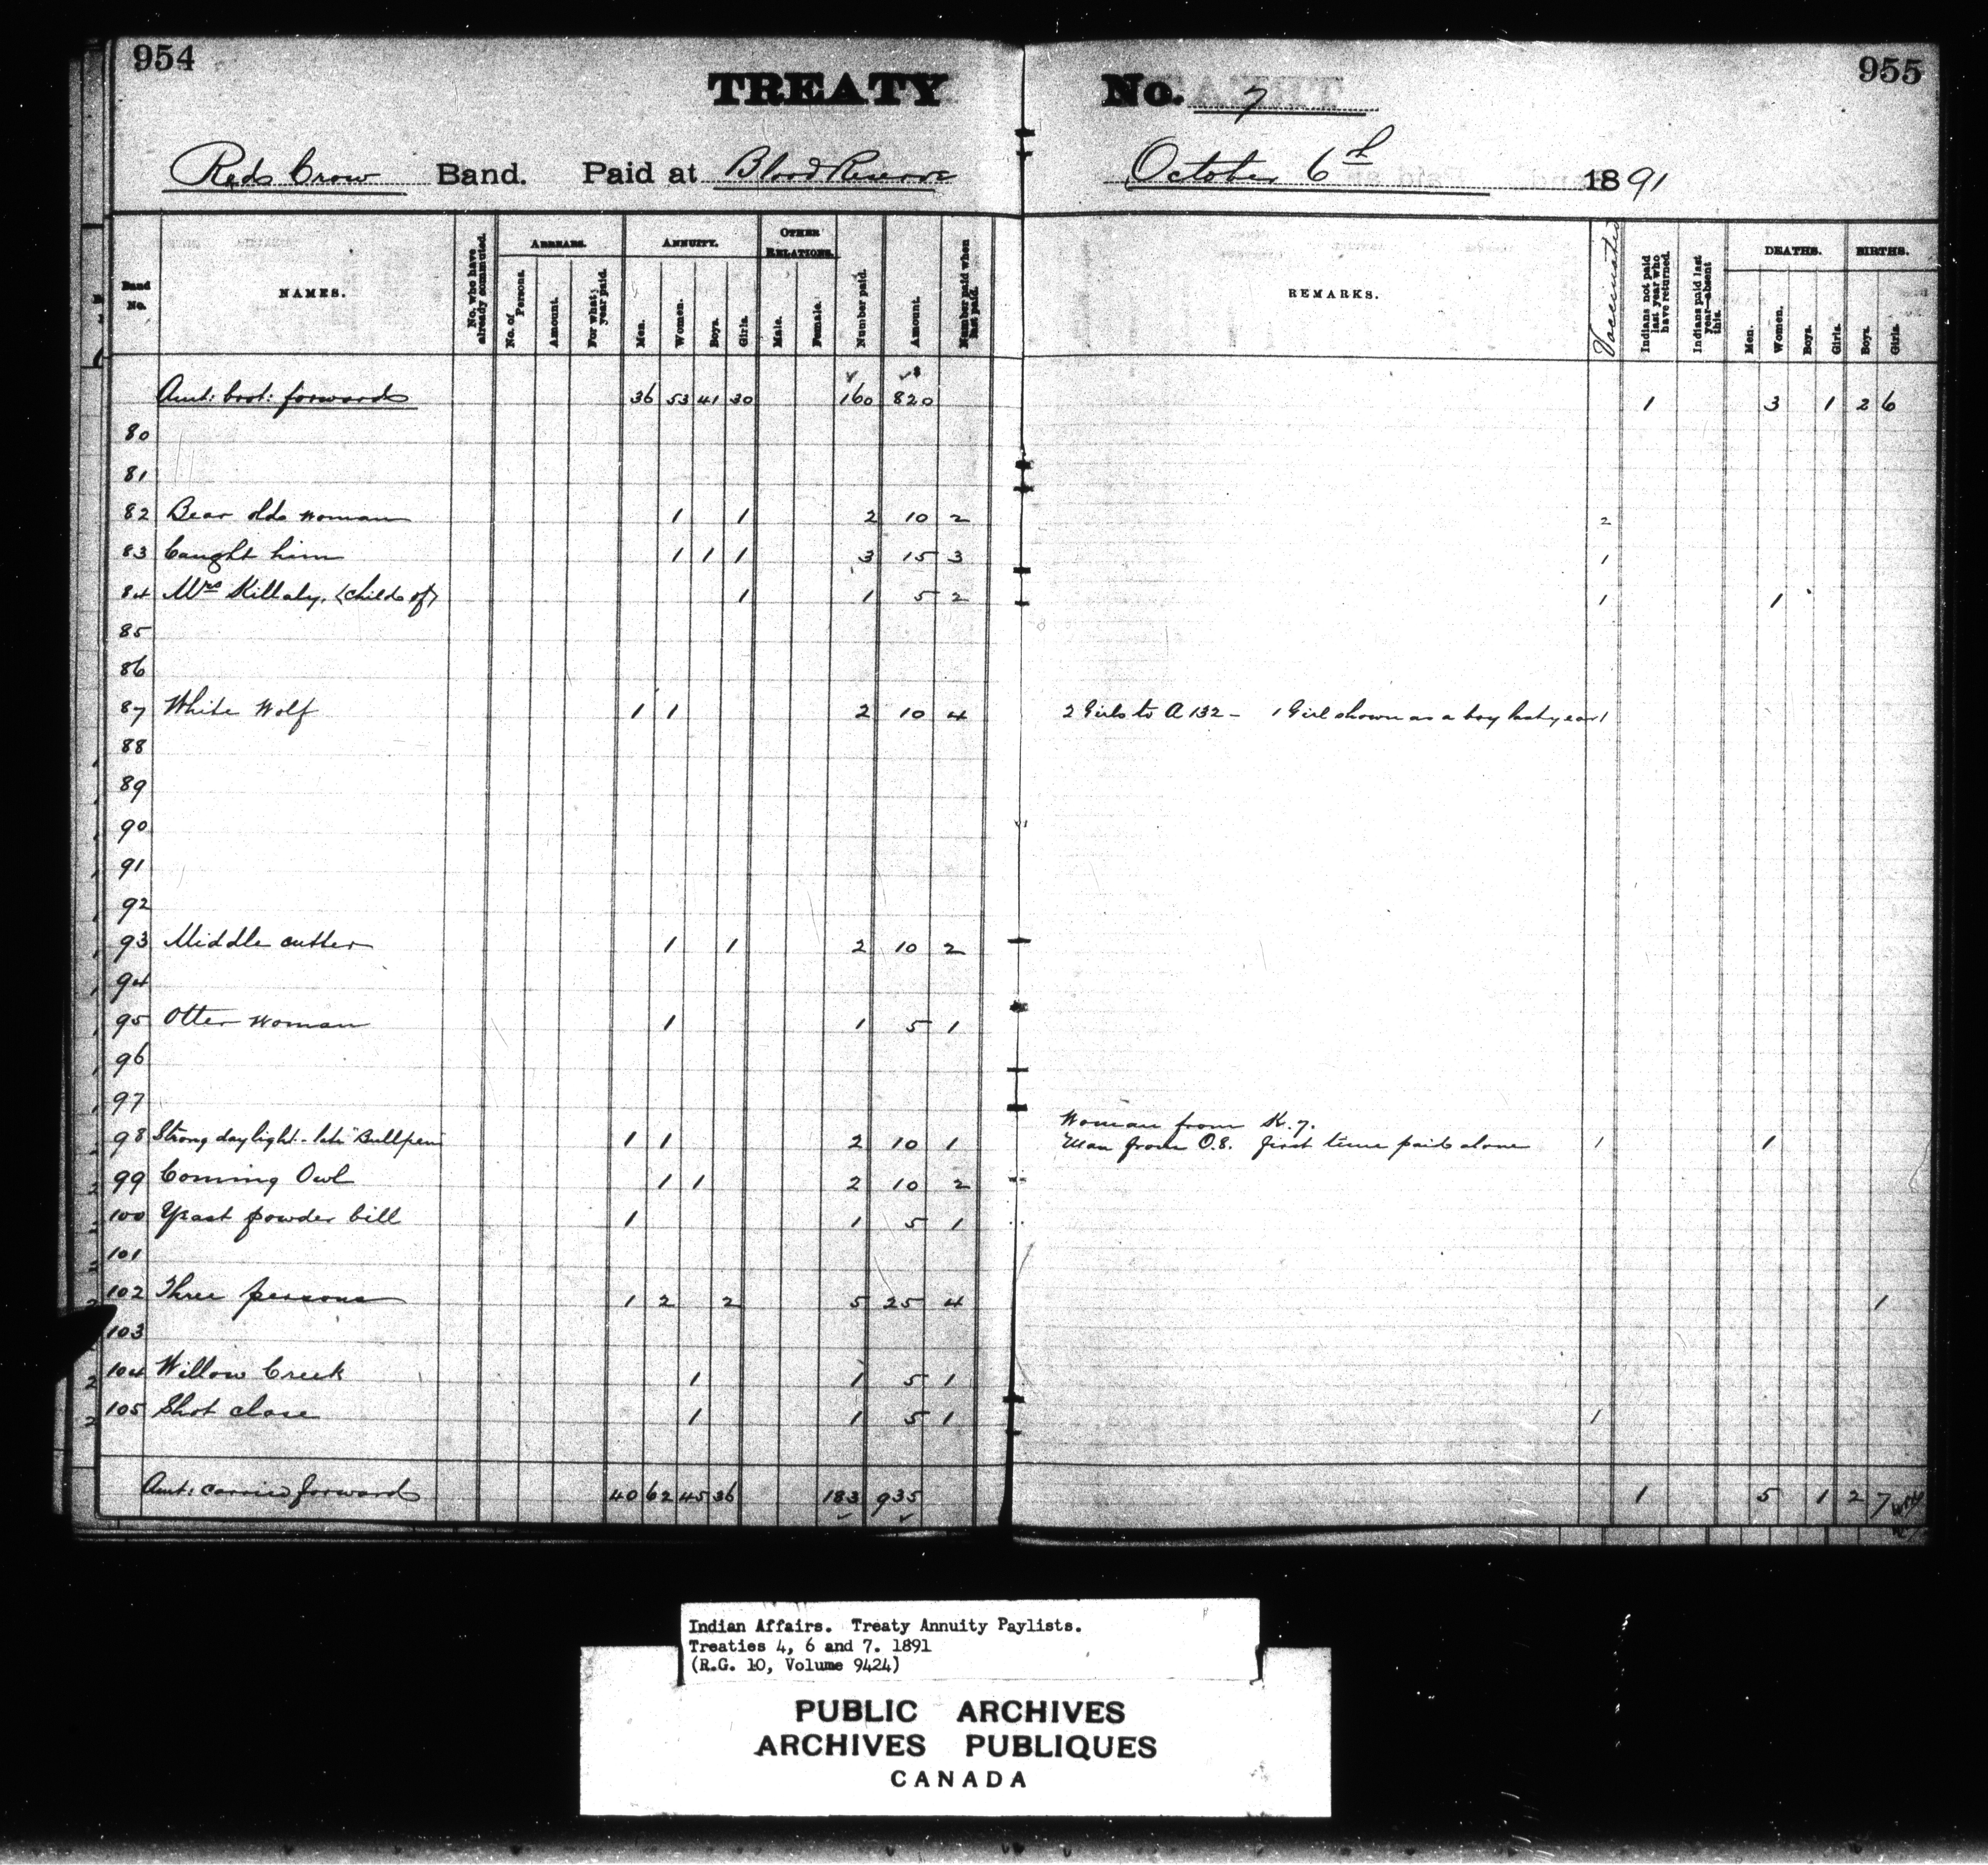 954
955
TREATY No. 7
Reds Crow Band. Paid at Blood Reserve October 6th 1891
Band No.
NAMES.
No. who have already commuted.
ARREARS.
No. of Persons.
Amount.
For what year paid.
ANNUITY.
Men.
Women.
Boys.
Girls.
OTHER RELATIONS.
Male.
Female.
Number paid.
Amount.
Number paid when last paid.
REMARKS.
Vaccinated
Indians not paid last year who have returned.
Indians paid last year—absent this.
DEATHS.
Men.
Women.
Boys.
Girls.
BIRTHS.
Boys.
Girls.
Amt: brot: forward 36 53 41 30 160 820 1 3 1 2 6
80
81
82 Bear old woman 1 1 2 10 2 2
83 Caught him 1 1 1 3 15 3 1
84 Mrs Killaly. (child of) 1 1 5 2 1 1
85
86
87 White Wolf 1 1 2 10 4 2 Girls to A 132 - 1 Girl shown as a boy last year 1
88
89
90
91
92
93 Middle cutter 1 1 2 10 2
94
95 Otter woman 1 1 5 1
96
97
Woman from K. 7.
98 Strong daylight - late "Bullpen" 1 1 2 10 1 Man from O.8. first time paid alone 1 1
99 Coming Owl 1 1 2 10 2
100 Yeast powder bill 1 1 5 1
101
102 Three persons 1 2 2 5 25 4 1
103
104 Willow Creek 1 1 5 1
105 Shot close 1 1 5 1 1
Amt: carried forward 40 62 45 36 183 935 1 5 1 2 7
Indian Affairs. Treaty Annuity Paylists.
Treaties 4, 6 and 7. 1891
(R.G. 10, Volume 9424)
PUBLIC ARCHIVES
ARCHIVES PUBLIQUES
CANADA